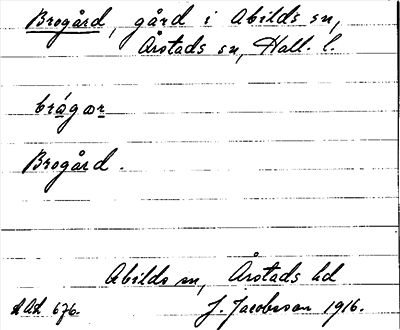 Brogård, gård i Abilds sn,
Årstads sn, Hall. l.
brágær
Brogård.
Abilds sn, Årstads hd
AAH 676. J. Jacobsson 1916.